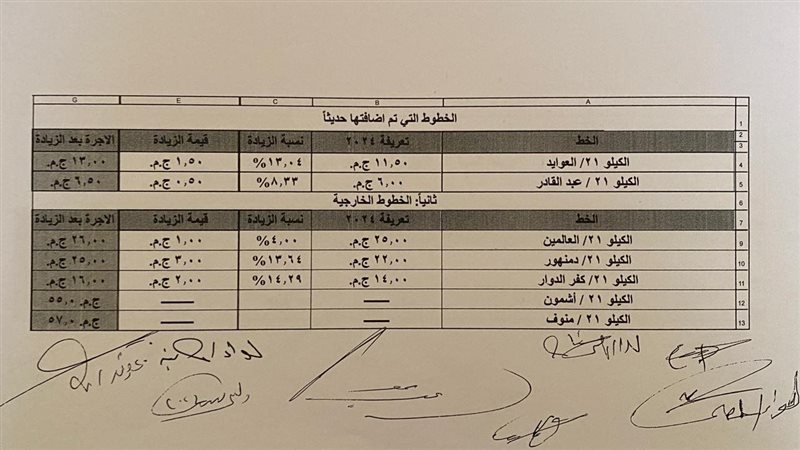 G E C B A
1 الخطوط التي تم اضافتها حديثاً
2
3 الخط تعريفة ٢٠٢٤ نسبة الزيادة قيمة الزيادة الاجرة بعد الزيادة
4 الكيلو ٢١/ العوايد ١١,٥٠ ج.م. ١٣,٠٤% ١,٥٠ ج.م. ١٣,٠٠ ج.م.
5 الكيلو ٢١/ عبد القادر ٦,٠٠ ج.م. ٨,٣٣% ٠,٥٠ ج.م. ٦,٥٠ ج.م.
6 ثانياً: الخطوط الخارجية
7 الخط تعريفة ٢٠٢٤ نسبة الزيادة قيمة الزيادة الاجرة بعد الزيادة
9 الكيلو ٢١/ العالمين ٢٥,٠٠ ج.م. ٤,٠٠% ١,٠٠ ج.م. ٢٦,٠٠ ج.م.
10 الكيلو ٢١/ دمنهور ٢٢,٠٠ ج.م. ١٣,٦٤% ٣,٠٠ ج.م. ٢٥,٠٠ ج.م.
11 الكيلو ٢١/ كفر الدوار ١٤,٠٠ ج.م. ١٤,٢٩% ٢,٠٠ ج.م. ١٦,٠٠ ج.م.
12 الكيلو ٢١/ أشمون — — ٥٥,٠ ج.م.
13 الكيلو ٢١/ منوف — — ٥٧,٠ ج.م.